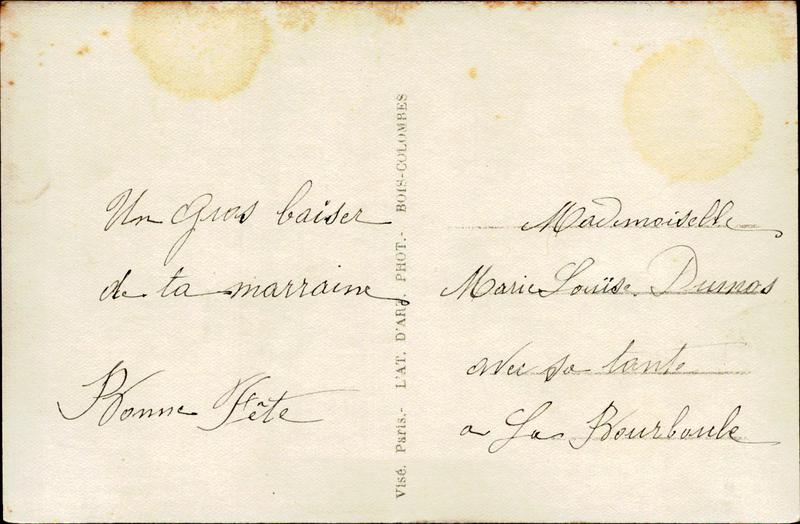 Un Gros baiser
de ta marraine
Bonne Fête
Visé. Paris.- L'AT. D'ART. PHOT.- BOIS-COLOMBES
Mademoiselle
Marie Louise Dumas
avec sa tante
a La Bourboule